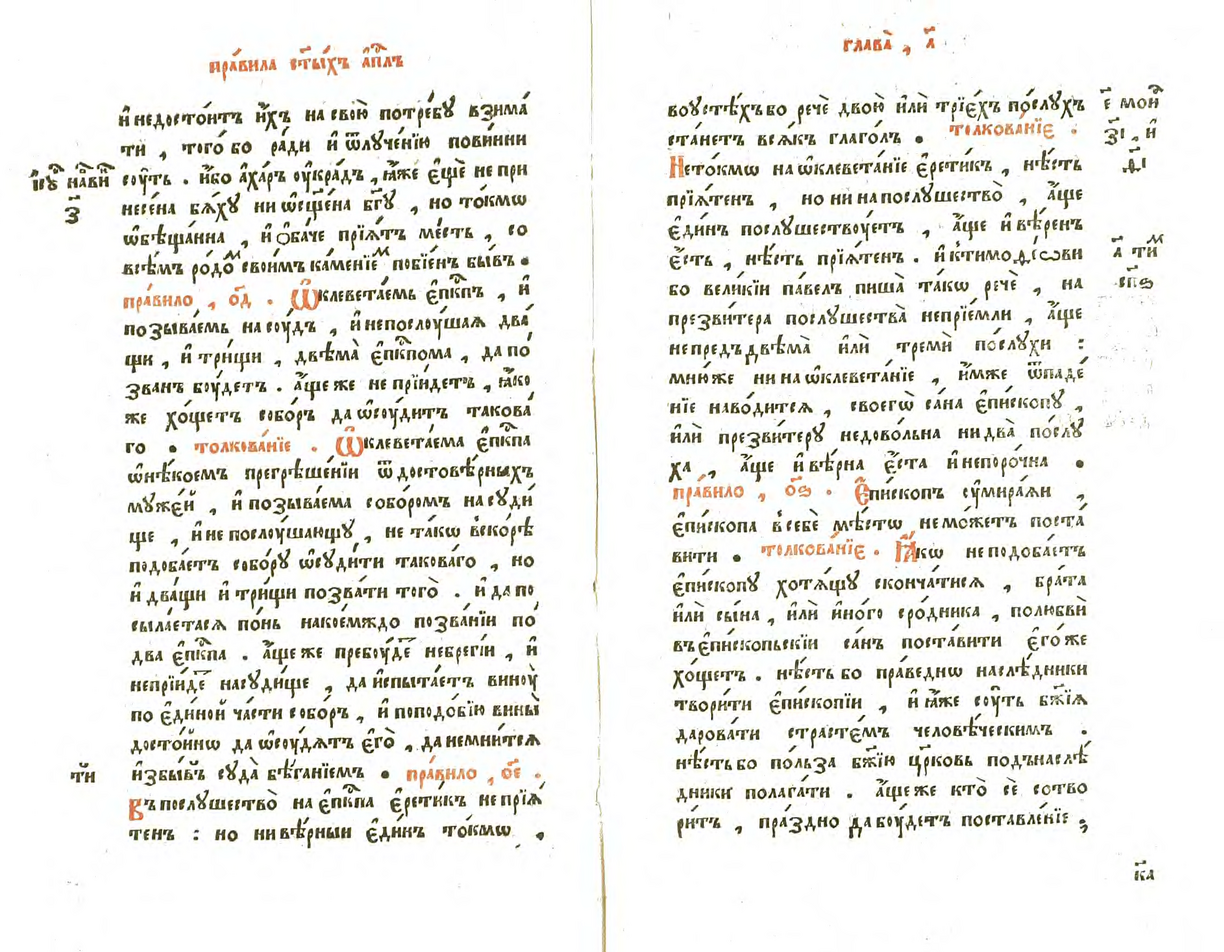 пра́вила ст҃ы́хъ а҆пⷭ҇лъ
и҆ недосто́итъ и҆́хъ на свою̀ потре́бꙋ взима́
ти , того̀ бо ра́ди и҆ ѿлꙋче́нїю пови́нни
і҆и҃сꙋ на́ви з҃
соу́ть . и҆́бо а҆ха́ръ оу҆кра́дъ , ꙗ҆́же є҆щѐ не при
несе́на бѧ́хꙋ ни ѡ҆сщ҃е́на бг҃ꙋ , но то́кмѡ
ѡ҆бѣща́нна , и҆ ѻ҆ба́че прїѧ́тъ ме́сть , со
всѣ́мъ ро́доⷨ свои́мъ ка́менїеⷨ побїе́нъ бы́въ .
пра́вило , о҃д . Ѡ҆клевета́емь є҆пⷭ҇кпъ , и҆
позыва́емь на соу́дъ , и҆ непослоу́шаѧ два́
щи , и҆ три́щи , двѣма̀ є҆пⷭ҇кпома , да по
зва́нъ боу́детъ . а҆́ще же не прїи́детъ , ꙗ҆́ко
же хо́щетъ собо́ръ да ѡ҆соу́дитъ такова́
го . толкова́нїе . Ѡ҆клевета́ема є҆пⷭ҇кпа
ѡ҆ нѣ́коемъ прегрѣше́нїи ѿ достовѣ́рныхъ
мꙋже́й , и҆ позыва́ема собо́ромъ на сꙋди́
ще , и҆ не послоу́шающꙋ , не та́кѡ вско́рѣ
подоба́етъ собо́рꙋ ѡ҆сꙋди́ти такова́го , но
и҆ два́щи и҆ три́щи позва́ти того̀ . и҆ да по
сыла́етасѧ по́нь на кое́мждо позва́нїи по
два̀ є҆пⷭ҇кпа . а҆́ще же пребоу́деⷮ небреги́й , и҆
непрїи́деⷮ на сꙋди́ще , да и҆спыта́етъ виноу̀
по є҆ди́ной ча́сти собо́ръ , и҆ по подо́бїю вины̀
досто́йнѡ да ѡ҆соу́дѧтъ є҆го̀ , да не мни́тсѧ
и҆збы́въ сꙋда̀ бѣ́ганїемъ . пра́вило , о҃е .
Въ послꙋ́шество на є҆пⷭ҇кпа є҆рети́къ не прїѧ́
тенъ : но ни вѣ́рный є҆ди́нъ то́кмѡ .
глава̀ , а҃
во оу҆стѣ́хъ бо речѐ двою̀ и҆лѝ трїе́хъ по́слꙋхъ
ста́нетъ всѧ́къ глаго́лъ . толкова́нїе .
Не то́кмѡ на ѡ҆клевета́нїе є҆рети́къ , нѣ́сть
прїѧ́тенъ , но ни на послꙋ́шество , а҆́ще
є҆ди́нъ послꙋ́шествоуетъ , а҆́ще и҆ вѣ́ренъ
є҆́сть , нѣ́сть прїѧ́тенъ . и҆ к тимоѳе́ови
а҃ тиⷨ
бо вели́кїи па́велъ пиша̀ та́кѡ речѐ , на
презви́тера послꙋ́шества непрїе́мли , а҆́ще
не предъ двѣма̀ и҆лѝ треми̇̀ по́слꙋхи :
мно́же ни на ѡ҆клевета́нїе , и҆́мже ѿпаде́
нїе наво́дитсѧ , своегѡ̀ са́на є҆пи́скопꙋ ,
и҆лѝ презви́терꙋ недово́льна ни два̀ по́слꙋ
ха , а҆́ще и҆ вѣ́рна є҆ста̀ и҆ непоро́чна .
пра́вило , о҃ѕ . Є҆пи́скопъ оу҆мира́ѧи ,
є҆пи́скопа в себѐ мѣ́стѡ не мо́жетъ поста́
вити . толкова́нїе . Ꙗ҆́кѡ не подоба́етъ
є҆пи́скопꙋ хотѧ́щꙋ сконча́тисѧ , бра́та
и҆лѝ сы́на , и҆лѝ и҆но́го сро́дника , по любвѝ
въ є҆пи́скопьскїи са́нъ поста́вити є҆го́же
хо́щетъ . нѣ́сть бо пра́веднѡ наслѣ́дники
твори́ти є҆пи́скопїи , и҆ ꙗ҆́же соу́ть бж҃їѧ
дарова́ти страсте́мъ человѣ́ческимъ .
нѣ́сть бо по́льза бж҃їю цр҃ковь подъ наслѣ́
дники полага́ти . а҆́ще же кто̀ сѐ сотво
ри́тъ , пра́здно да боу́детъ поставле́нїе ,
к҃а